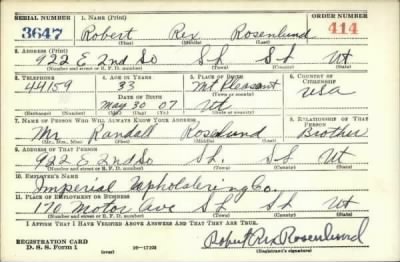 SERIAL NUMBER 1. NAME (Print) ORDER NUMBER
3647 Robert Rex Rosenlund 414
(First) (Middle) (Last)
2. ADDRESS (Print)
922 E 2nd So SL SL Ut
(Number and street or R. F. D. number) (Town) (County) (State)
3. TELEPHONE 4. AGE IN YEARS 5. PLACE OF BIRTH 6. COUNTRY OF CITIZENSHIP
44159 33 Mt Pleasant USA
DATE OF BIRTH (Town or county)
May 30 07 Ut
(Exchange) (Number) (Mo.) (Day) (Yr.) (State or country)
7. NAME OF PERSON WHO WILL ALWAYS KNOW YOUR ADDRESS 8. RELATIONSHIP OF THAT PERSON
Mr Randall Roselund Brother
(Mr., Mrs., Miss) (First) (Middle) (Last)
9. ADDRESS OF THAT PERSON
922 E 2nd So SL. SL Ut
(Number and street or R. F. D. number) (Town) (County) (State)
10. EMPLOYER'S NAME
Imperial Upholstering Co.
11. PLACE OF EMPLOYMENT OR BUSINESS
170 Motor Ave SL SL Ut
(Number and street or R. F. D. number) (Town) (County) (State)
I AFFIRM THAT I HAVE VERIFIED ABOVE ANSWERS AND THAT THEY ARE TRUE.
REGISTRATION CARD
D. S. S. Form 1 (over) 16—17105
Robert Rex Rosenlund
(Registrant's signature)